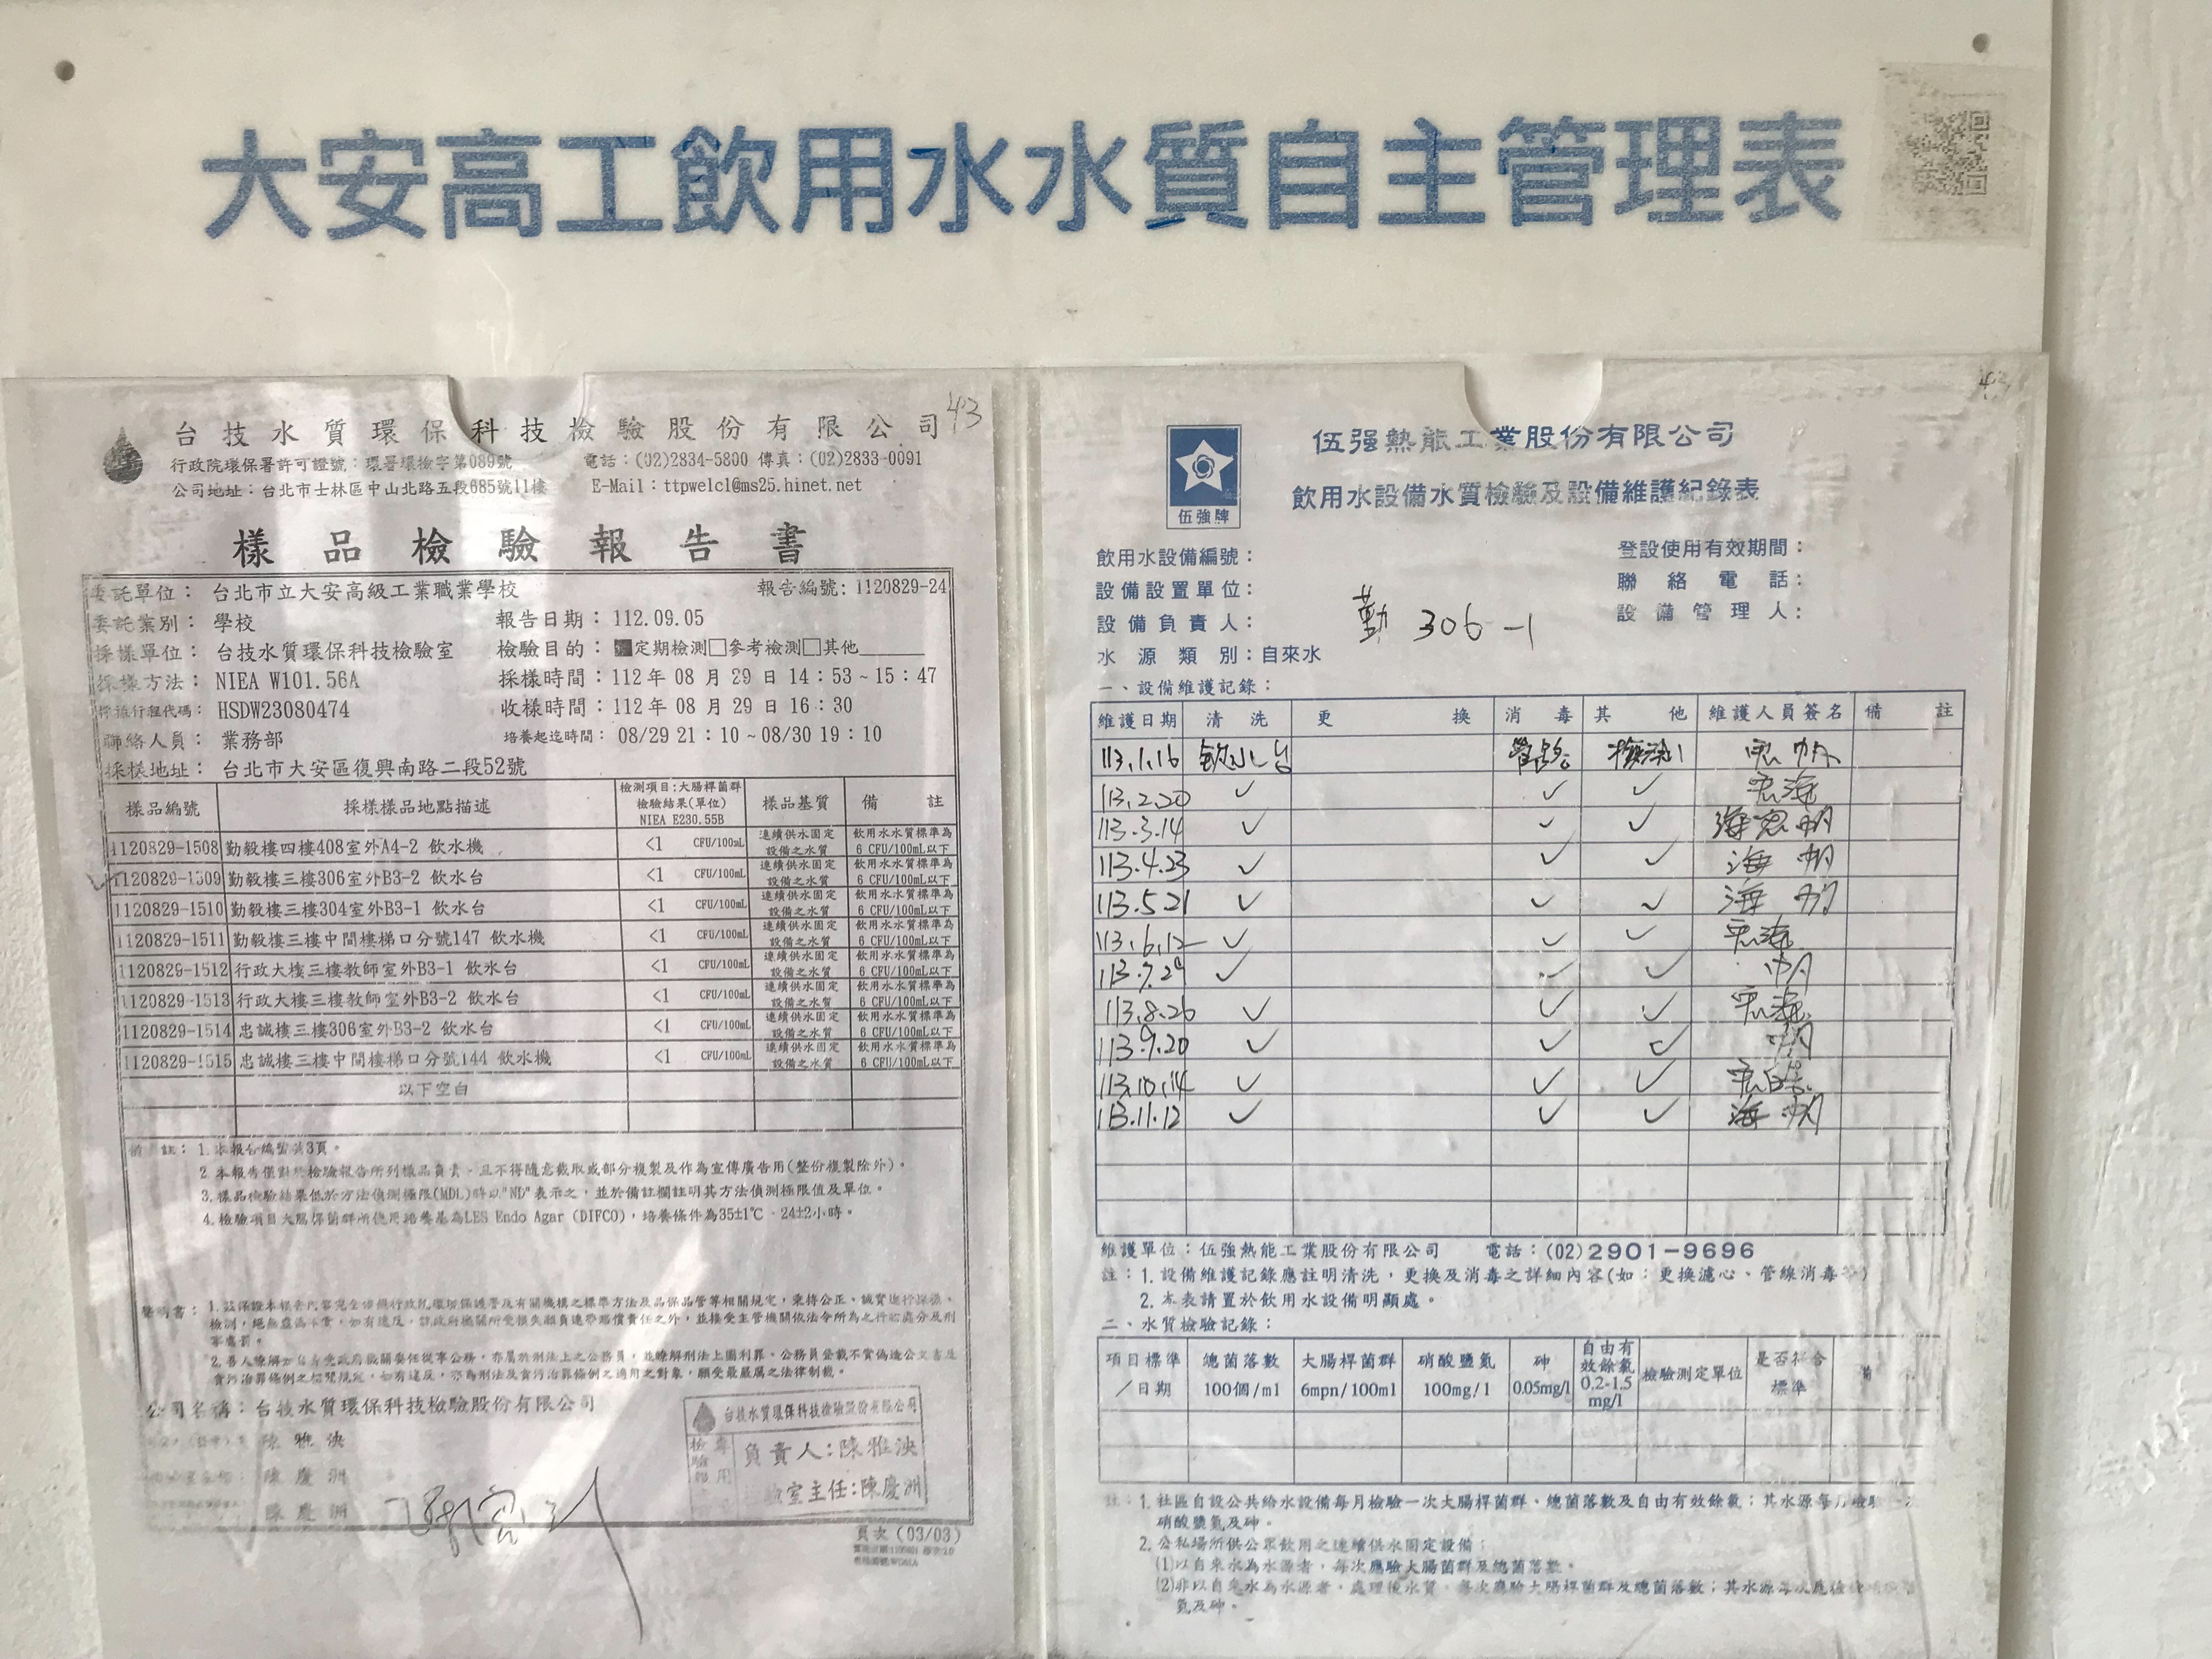 大安高工飲用水水質自主管理表
43
台技水質環保科技檢驗股份有限公司
行政院環保署許可證號：環署環檢字第089號 電話：(02)2834-5800 傳真：(02)2833-0091
公司地址：台北市士林區中山北路五段685號11樓 E-Mail：ttpwelcl@ms25.hinet.net
樣品檢驗報告書
委託單位： 台北市立大安高級工業職業學校 報告編號：1120829-24
委託業別： 學校 報告日期：112.09.05
採樣單位： 台技水質環保科技檢驗室 檢驗目的：■定期檢測□參考檢測□其他
採樣方法： NIEA W101.56A 採樣時間：112年 08 月 29 日 14：53~15：47
採樣行程代碼： HSDW23080474 收樣時間：112年 08 月 29 日 16：30
聯絡人員： 業務部 培養起迄時間：08/29 21：10~08/30 19：10
採樣地址： 台北市大安區復興南路二段52號
樣品編號 採樣樣品地點描述 檢測項目：大腸桿菌群 檢驗結果(單位) NIEA E230.55B 樣品基質 備註
1120829-1508 勤毅樓四樓408室外A4-2 飲水機 <1 CFU/100mL 連續供水固定設備之水質 飲用水水質標準為6 CFU/100mL以下
1120829-1509 勤毅樓三樓306室外B3-2 飲水台 <1 CFU/100mL 連續供水固定設備之水質 飲用水水質標準為6 CFU/100mL以下
1120829-1510 勤毅樓三樓304室外B3-1 飲水台 <1 CFU/100mL 連續供水固定設備之水質 飲用水水質標準為6 CFU/100mL以下
1120829-1511 勤毅樓三樓中間樓梯口分號147 飲水機 <1 CFU/100mL 連續供水固定設備之水質 飲用水水質標準為6 CFU/100mL以下
1120829-1512 行政大樓三樓教師室外B3-1 飲水台 <1 CFU/100mL 連續供水固定設備之水質 飲用水水質標準為6 CFU/100mL以下
1120829-1513 行政大樓三樓教師室外B3-2 飲水台 <1 CFU/100mL 連續供水固定設備之水質 飲用水水質標準為6 CFU/100mL以下
1120829-1514 忠誠樓三樓306室外B3-2 飲水台 <1 CFU/100mL 連續供水固定設備之水質 飲用水水質標準為6 CFU/100mL以下
1120829-1515 忠誠樓三樓中間樓梯口分號144 飲水機 <1 CFU/100mL 連續供水固定設備之水質 飲用水水質標準為6 CFU/100mL以下
以下空白
備註：1.本報告編號共3頁。
2.本報告僅對於檢驗報告所列樣品負責，且不得隨意截取或部分複製及作為宣傳廣告用(整份複製除外)。
3.樣品檢驗結果低於方法偵測極限(MDL)時以"ND"表示之，並於備註欄註明其方法偵測極限值及單位。
4.檢驗項目大腸桿菌群所使用培養基為LES Endo Agar (DIFCO)，培養條件為35±1℃、24±2小時。
聲明書：1.茲保證本報告內容完全依照行政院環境保護署及有關機構之標準方法及品保品管等相關規定，秉持公正、誠實進行採樣、
檢測，絕無虛偽不實，如有違反，就政府機關所受損失願負連帶賠償責任之外，並接受主管機關依法令所為之行政處分及刑
事處罰。
2.吾人瞭解如自身受政府機關委任從事公務，亦屬於刑法上之公務員，並瞭解刑法上圖利罪、公務員登載不實偽造公文書及
貪污治罪條例之相關規定，如有違反，亦為刑法及貪污治罪條例之適用之對象，願受最嚴厲之法律制裁。
公司名稱：台技水質環保科技檢驗股份有限公司
陳雅泱
陳慶洲
陳慶洲
台技水質環保科技檢驗股份有限公司
檢驗專用
負責人：陳雅泱
驗室主任：陳慶洲
頁次(03/03)
43
伍強牌
伍强熱能工業股份有限公司
飲用水設備水質檢驗及設備維護紀錄表
飲用水設備編號： 登設使用有效期間：
設備設置單位： 聯絡電話：
設備負責人： 勤 306-1 設備管理人：
水源類別：自來水
一、設備維護記錄：
維護日期 清洗 更換 消毒 其他 維護人員簽名 備註
113.1.16
113.2.20 ✓ ✓ ✓
113.3.14 ✓ ✓ ✓
113.4.23 ✓ ✓ ✓ 海 帆
113.5.21 ✓ ✓ ✓ 海 帆
113.6.12 ✓ ✓ ✓
113.7.29 ✓ ✓ ✓ 帆
113.8.26 ✓ ✓ ✓
113.9.20 ✓ ✓ ✓ 帆
113.10.14 ✓ ✓ ✓
113.11.12 ✓ ✓ ✓ 海 帆
維護單位：伍強熱能工業股份有限公司 電話：(02)2901-9696
註：1.設備維護記錄應註明清洗，更換及消毒之詳細內容(如：更換濾心、管線消毒等)
2.本表請置於飲用水設備明顯處。
二、水質檢驗記錄：
項目標準／日期 總菌落數 100個/ml 大腸桿菌群 6mpn/100ml 硝酸鹽氮 100mg/l 砷 0.05mg/l 自由有效餘氯 0.2-1.5 mg/l 檢驗測定單位 是否符合標準 備
註：1.社區自設公共給水設備每月檢驗一次大腸桿菌群、總菌落數及自由有效餘氯；其水源每月檢驗一次
硝酸鹽氮及砷。
2.公私場所供公眾飲用之連續供水固定設備：
(1)以自來水為水源者，每次應驗大腸桿菌群及總菌落數。
(2)非以自來水為水源者，處理後水質，每次應驗大腸桿菌群及總菌落數；其水源每次應檢
氮及砷。